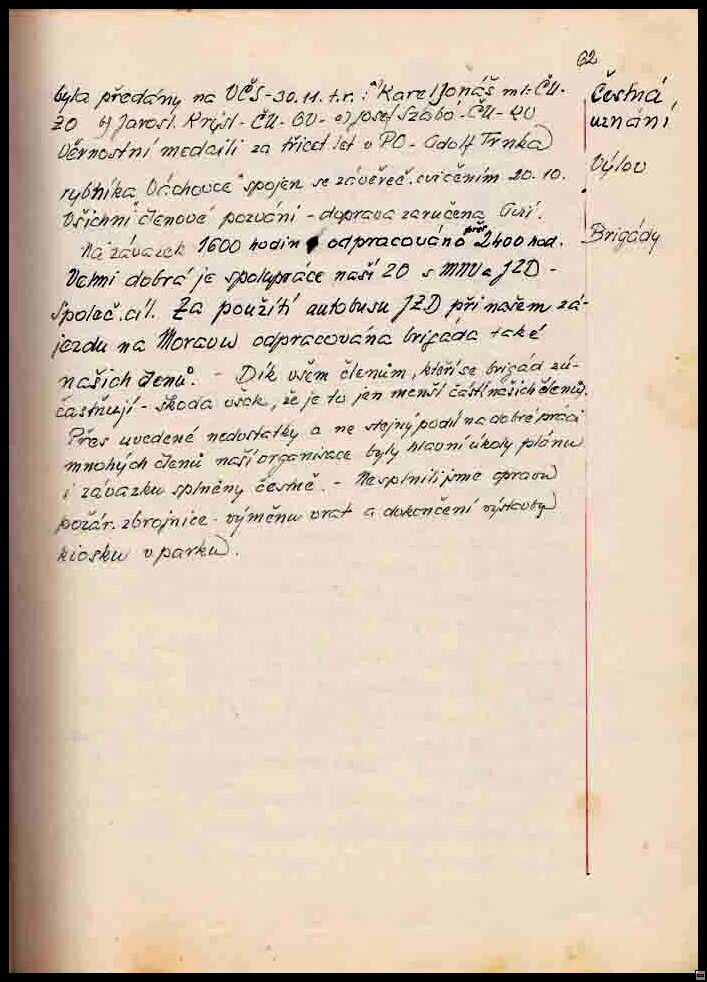 62
byla předány na VČS - 30.11. t.r. : a) Karel Jonáš ml. - ČU -
ZO b) Jarosl. Krýsl - ČU - OV - c) Josef Szabó - ČU - KV
Věrnostní medaili za třicet let v PO - Adolf Trnka
rybníka Váchovce" spojen se závěreč. cvičením 20. 10.
Všichni členové pozváni - doprava zaručena Avií.
Na závazek 1600 hodin odpracováno přes 2400 hod.
Velmi dobrá je spolupráce naší ZO s MNV a JZD -
společ. cíl. Za použití autobusu JZD při našem zá-
jezdu na Moravu odpracována brigáda také
našich členů. - Dík všem členům, kteří se brigád zú-
častňují - škoda však, že je to jen menší část našich členů.
Přes uvedené nedostatky a ne stejný podíl na dobré práci
mnohých členů naší organisace byly hlavní úkoly plánu
i závazku splněny čestně. - Nesplnili jsme opravu
požár. zbrojnice - výměnu vrat a dokončení výstavby
kiosku v parku.
Čestná
uznání
Výlov
Brigády